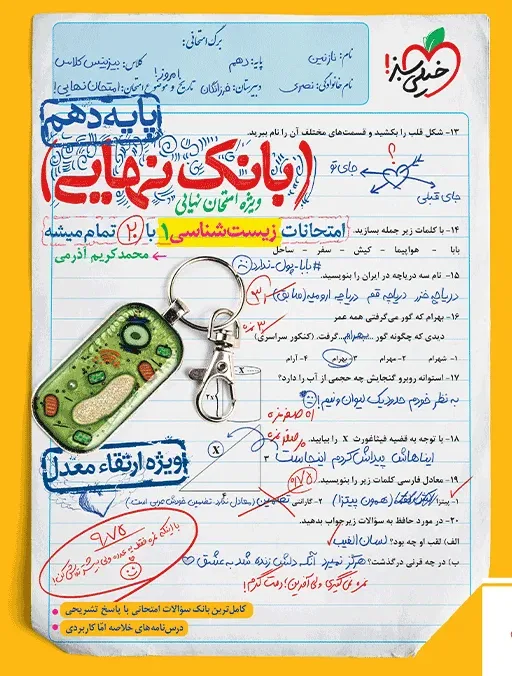 خیلی سبز!
برگ امتحانی:
نام: نازنین
پایه: دهم
کلاس: بیزینس کلاس
نام خانوادگی: نصیری
دبیرستان: فرزانگان
تاریخ و موضوع امتحان: امتحان نهایی!
امروز!
پایه دهم
۱۳- شکل قلب را بکشید و قسمت‌های مختلف آن را نام ببرید.
؟
جای تو
جای قبلی
(بانک نهایی)
ویژه امتحان نهایی
۱۴- با کلمات زیر جمله بسازید.
امتحانات زیست‌شناسی ۱ با ۲۰ تمام میشه
محمدکریم آذرمی
بابا - هواپیما - کیش - سفر - ساحل
#بابا-پول-ندارد
۱۵- نام سه دریاچه در ایران را بنویسید.
دریاچه خزر دریاچه قم دریاچه ارومیه (سابق)
۱۶- بهرام که گور می‌گرفتی همه عمر
دیدی که چگونه گور ...بهرام... گرفت. (کنکور سراسری)
۱- شهرام ۲- مهرام ۳- بهرام ۴- آرام
۱۷- استوانه روبرو گنجایش چه حجمی از آب را دارد؟
به نظر خودم حدود یک لیوان و نیم!
X
۲۱
۱۸- با توجه به قضیه فیثاغورت X را بیابید.
ایناهاش پیداش کردم اینجاست
X
۳
ویژه ارتقاء معدل
۱۹- معادل فارسی کلمات زیر را بنویسید.
۰/۷۵
۱- پیتزا (همون پیتزا) ۲- گارانتی تضمین (معادل ندارد. تضمین خودش عربی است)
۲۰- در مورد حافظ به سؤالات زیر جواب بدهید.
الف) لقب او چه بود؟ لسان الغیب
ب) در چه قرنی درگذشت؟ هرگز نمیرد آنکه دلش زنده شد به عشق
نمره نمی‌گیری ولی آفرین! دمت گرم!
۹/۷۵
کامل‌ترین بانک سؤالات امتحانی با پاسخ تشریحی
درس‌نامه‌های خلاصه امّا کاربردی